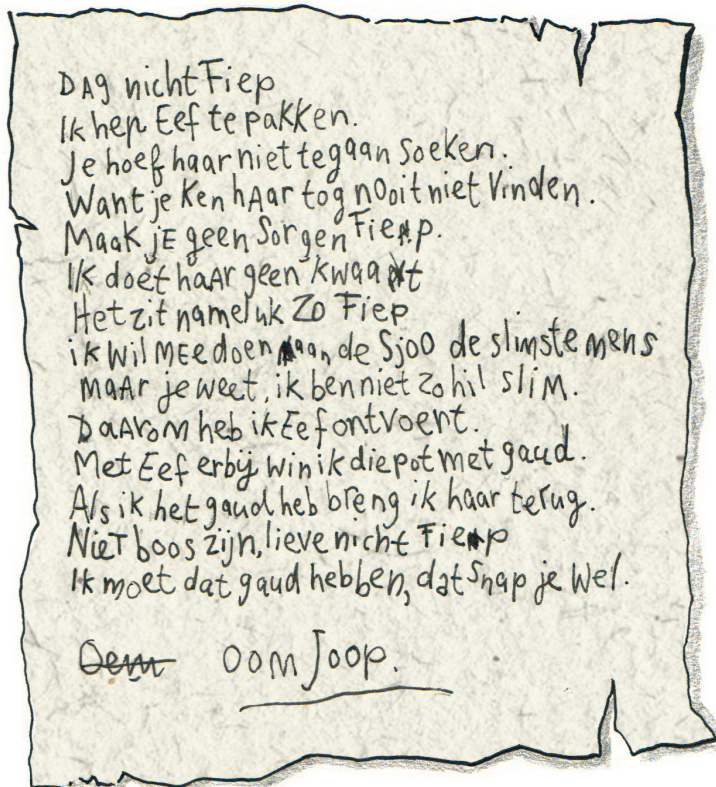 DAg nicht Fiep
Ik hep Eef te pakken.
Je hoef haar niet te gaan soeken.
Want je ken hAar tog nOoit niet vinden.
Maak jE geen Sorgen Fiep.
Ik doet haAr geen kwaat
Het zit nameluk Zo Fiep
ik wil MEedoen aan de SjoO de slimste mens
maAr je weet, ik ben niet zo hil slim.
DaAroM heb ik Eef ontvoert.
Met Eef erbij win ik die pot met gaud.
Als ik het gaud heb breng ik haar terug.
NieT boos zijn, lieve nicht Fiep
Ik moet dat gaud hebben, dat snap je wel.
Oem OOM Joop.